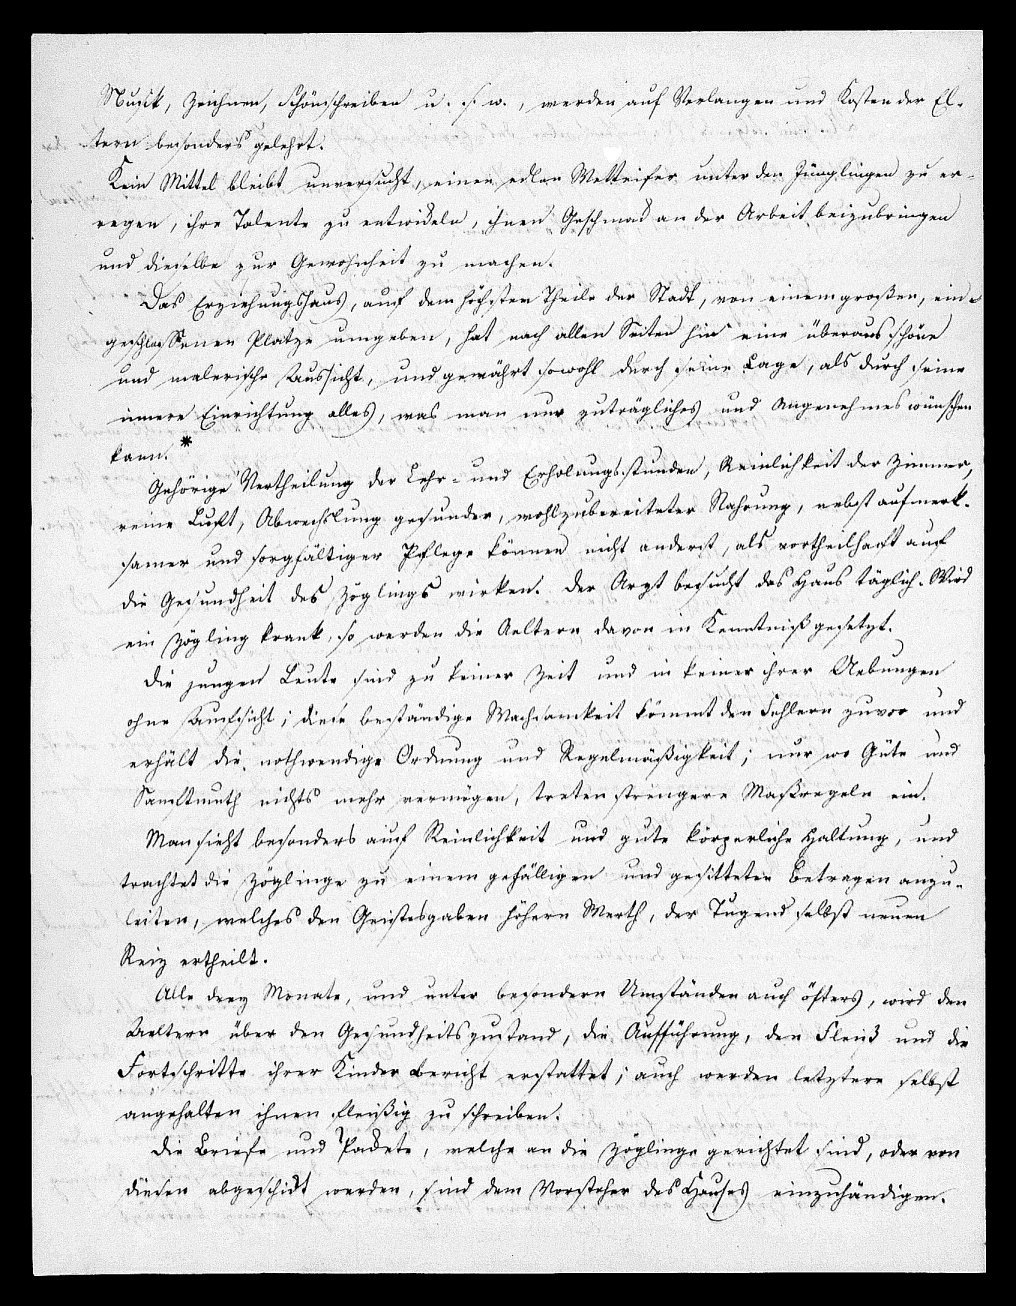 Musik, Zeichnen, Schönschreiben u. s. w., werden auf Verlangen und Kosten der El-
tern besonders gelehrt.
Kein Mittel bleibt unversucht, einen edlen Wetteifer unter den Jünglingen zu er-
regen, ihre Talente zu entwickeln, ihnen Geschmack an der Arbeit beizubringen
und dieselbe zur Gewohnheit zu machen.
Das Erziehungshaus, auf dem höchsten Theile der Stadt, von einem großen, ein-
geschlossenen Platze umgeben, hat nach allen Seiten hin eine überaus schöne
und malerische Aussicht, und gewährt sowohl durch seine Lage, als durch seine
innere Einrichtung alles, was man nur zuträgliches und Angenehmes wünschen
kann.*
Gehörige Vertheilung der Lehr- und Erholungsstunden, Reinlichkeit der Zimmer,
reine Luft, Abwechslung gesunder, wohlzubereiteter Nahrung, nebst aufmerk-
samer und sorgfältiger Pflege können nicht anderst, als vortheilhaft auf
die Gesundheit des Zöglings wirken. Der Arzt besucht das Haus täglich. Wird
ein Zögling krank, so werden die Aeltern davon in Kenntniß gesetzt.
Die jungen Leute sind zu keiner Zeit und in keiner ihrer Uebungen
ohne Aufsicht; diese beständige Wachsamkeit kömmt den Fehlern zuvor und
erhält die nothwendige Ordnung und Regelmäßigkeit; nur wo Güte und
Sanftmuth nichts mehr vermögen, treten strengere Maßregeln ein.
Man sieht besonders auf Reinlichkeit und gute körperliche Haltung, und
trachtet die Zöglinge zu einem gefälligen und gesitteten Betragen anzu-
leiten, welches den Geistesgaben höhern Werth, der Tugend selbst neuen
Reiz ertheilt.
Alle drey Monate, und unter besondern Umständen auch öfters, wird den
Aeltern über den Gesundheitszustand, die Aufführung, den Fleiß und die
Fortschritte ihrer Kinder Bericht erstattet; auch werden letztere selbst
angehalten ihnen fleißig zu schreiben.
Die Briefe und Packete, welche an die Zöglinge gerichtet sind, oder von
diesen abgeschickt werden, sind dem Vorsteher des Hauses einzuhändigen.